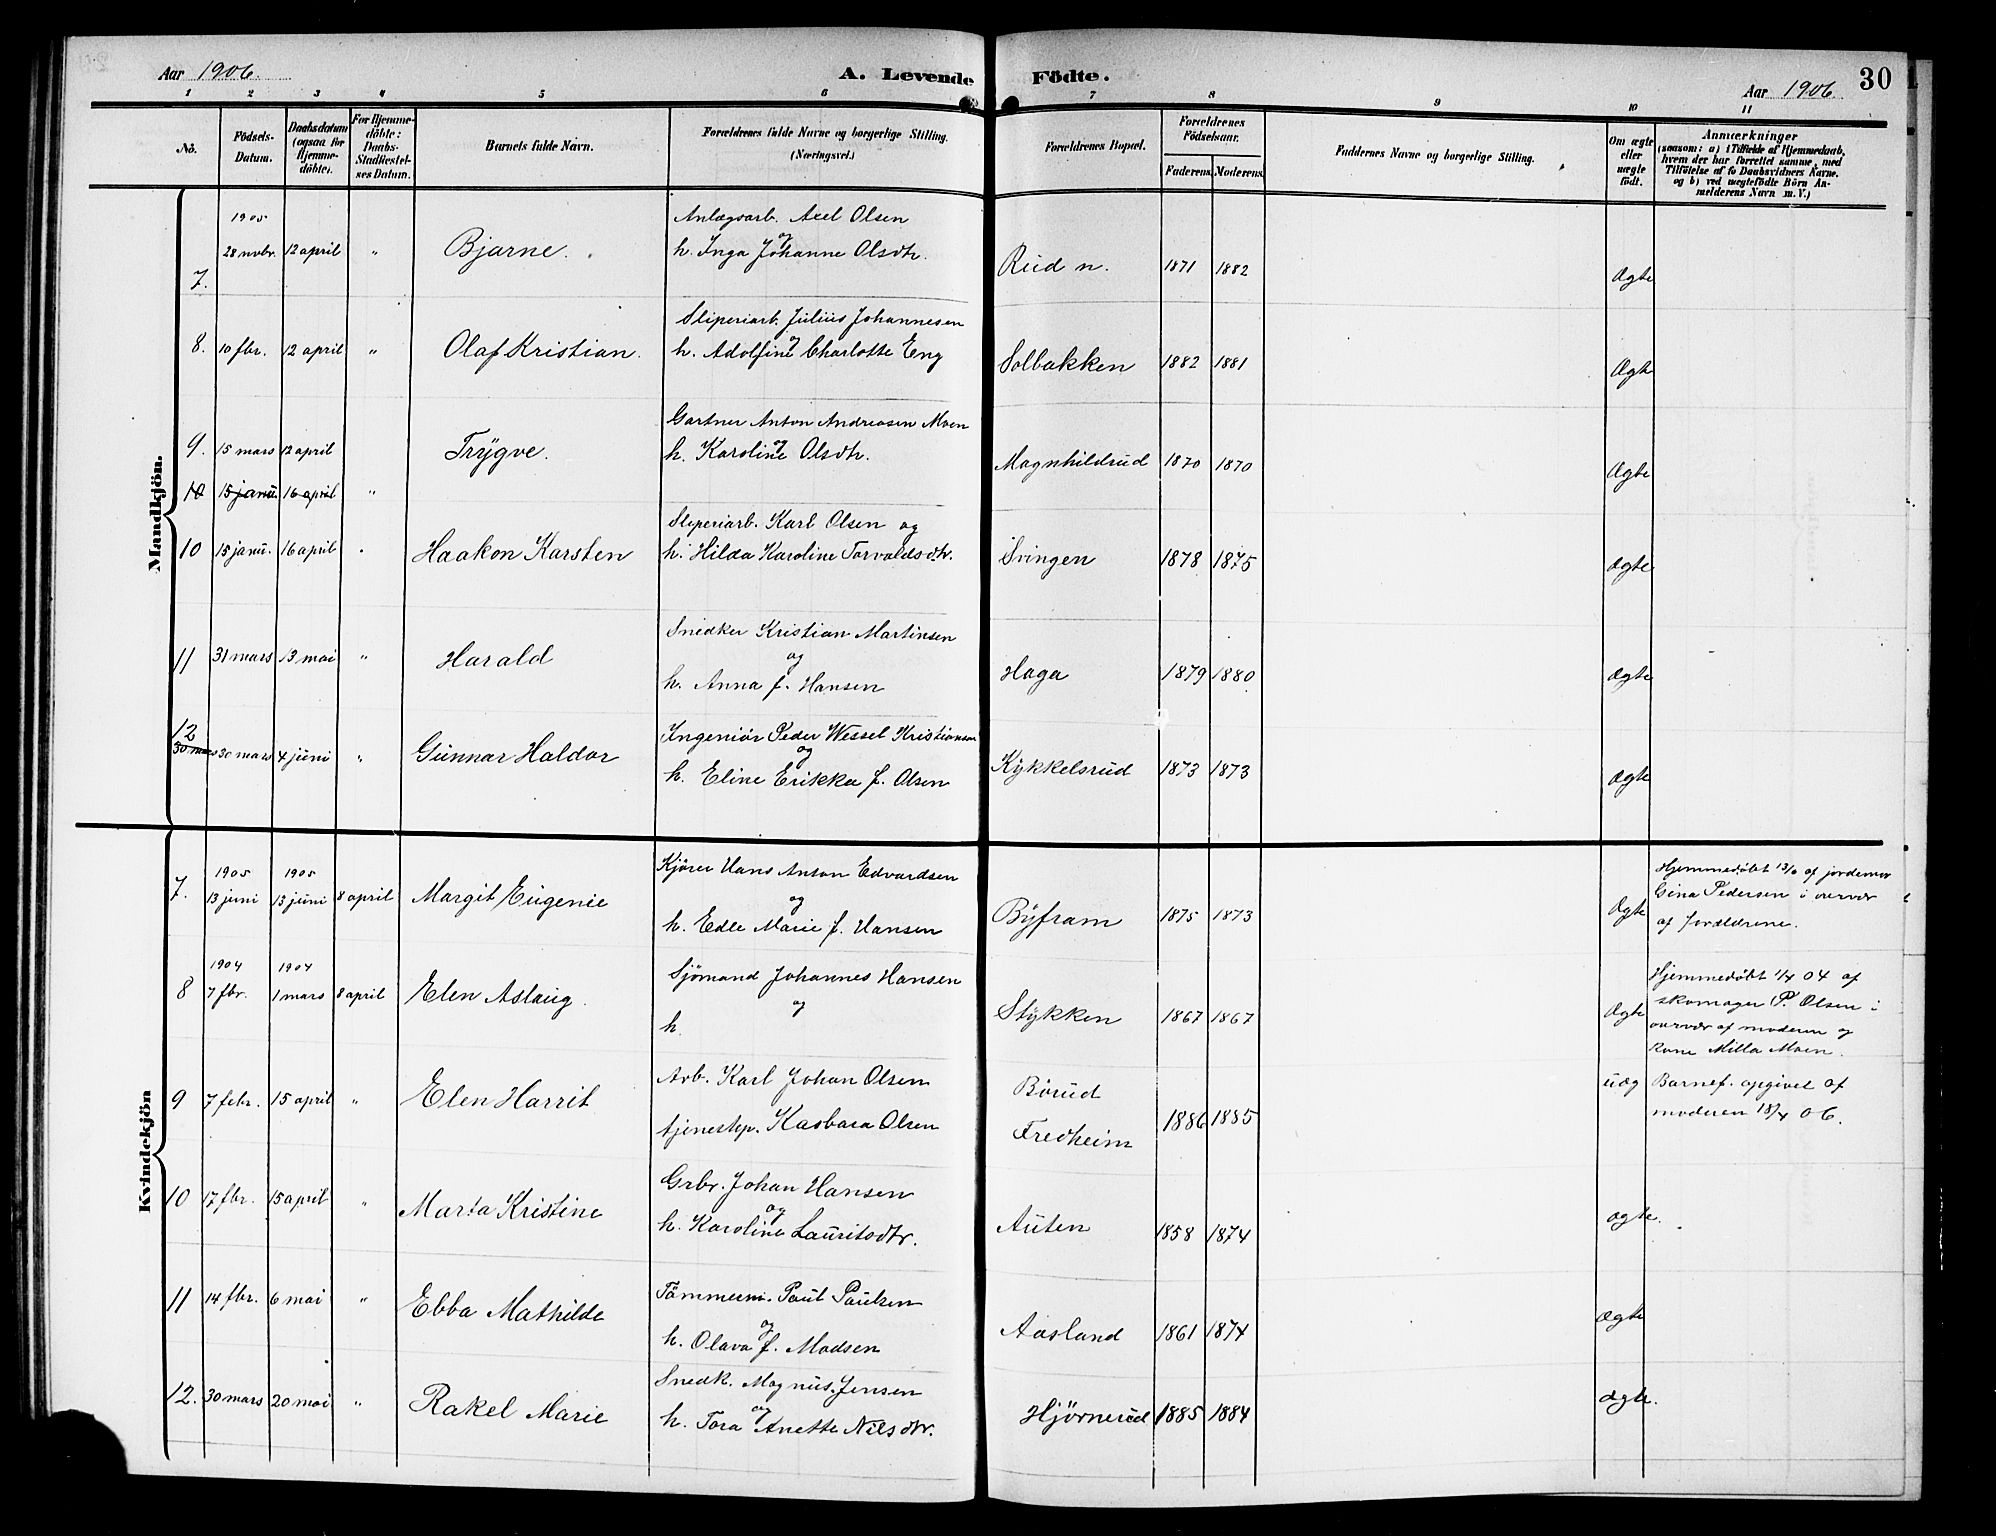 Aar 1906.
A. Levende Födte.
Aar 1906.
30
1 2 3 4 5 6 7 8 9 10 11
No.
Födsels-Datum.
Daabsdatum (ogsaa for Hjemmedöbte).
For Hjemmedöbte: Daabs-Stadfæstelses Datum.
Barnets fulde Navn.
Forældrenes fulde Navne og borgerlige Stilling. (Næringsvei.)
Forældrenes Bopæl.
Forældrenes Födselsaar.
Faderens. Moderens.
Faddernes Navne og borgerlige Stilling.
Om ægte eller uægte födt.
Anmærkninger
(saasom: a) i Tilfælde af Hjemmedaab, hvem der har forrettet samme, med Tilföielse af to Daabsvidners Navne. og b) ved uægtefödte Börn Anmelderens Navn m. V.)
Mandkjön.
7. 1905 28 novbr. 12 april " Bjarne. Anlægsarb. Axel Olsen og h. Inga Johanne Olsdtr. Rud n. 1871 1882 Ægte
8. 10 fbr. 12 april " Olaf Kristian. Sliperiarb. Julius Johannesen og h. Adolfine Charlotte Eng Solbakken 1882 1881 Ægte
9. 15 mars 12 april Trygve. Gartner Anton Andreasen Moen og h. Karoline Olsdtr. Magnhildrud 1870 1870 Ægte
10 15 janu. 16 april "
10 15 janu. 16 april " Haakon Karsten Sliperiarb. Karl Olsen og h. Hilda Karoline Torvaldsdtr. Svingen 1878 1875 Ægte
11 31 mars 13 mai " Harald Snedker Kristian Martinsen og h. Anna f. Hansen Haga 1879 1880 Ægte
12 30 mars 30 mars 4 juni " Gunnar Haldor Ingeniör Peder Wessel Kristiansen og h. Eline Erikka f. Olsen Kykkelsrud 1873 1873 Ægte
Kvindekjön
7. 1905 13 juni 1905 13 juni 8 april Margit Eugenie Kjörer Hans Anton Edvardsen og h. Edle Marie f. Hansen Byfram 1875 1873 Ægte Hjemmedöbt 13/6 af jordemor Gina Pedersen i overvær af forældrene.
8 1904 7 fbr. 1904 1 mars 8 april Elen Aslaug. Sjömand Johannes Hansen og h. Stykken 1867 1867 Ægte Hjemmedöbt 1/4 04 af skomager P. Olsen i overvær af moderen og kone Milla Moen.
9 7 febr. 15 april " Elen Harrit Arb. Karl Johan Olsen tjenestep. Kasbara Olsen Börud Fredheim 1886 1885 uæg Barnef. opgivet af moderen 18/4 06.
10 17 fbr. 15 april " Marta Kristine Grbr. Johan Hansen og h. Karoline Lauritsdtr. Auten 1858 1874 ægte.
11 14 fbr. 6 mai " Ebba Mathilde Tömmerm. Paul Paulsen og h. Olava f. Madsen Aasland 1861 1874 Ægte
12. 30 mars 20 mai " Rakel Marie Snedk. Magnus Jensen og h. Tora Anette Nilsdtr. Hjörnerud 1885 1884 ægte.